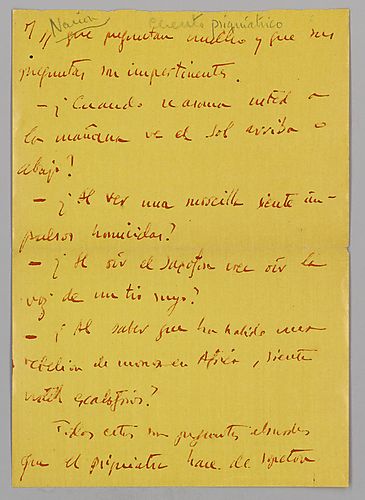 Nación cuento psiquiátrico
que preguntan mucho y que sus
preguntas son impertinentes.
– ¿Cuando se asoma usted a
la mañana ve el sol arriba o
abajo?
– ¿Al ver una moscilla siente im-
pulsos homicidas?
– ¿Al oír el saxofón cree oír la
voz de un tío suyo?
– ¿Al saber que ha habido una
rebelión de monos en África, siente
usted escalofríos?
Todas estas son preguntas absurdas
que el psiquiatra hace de sopetón